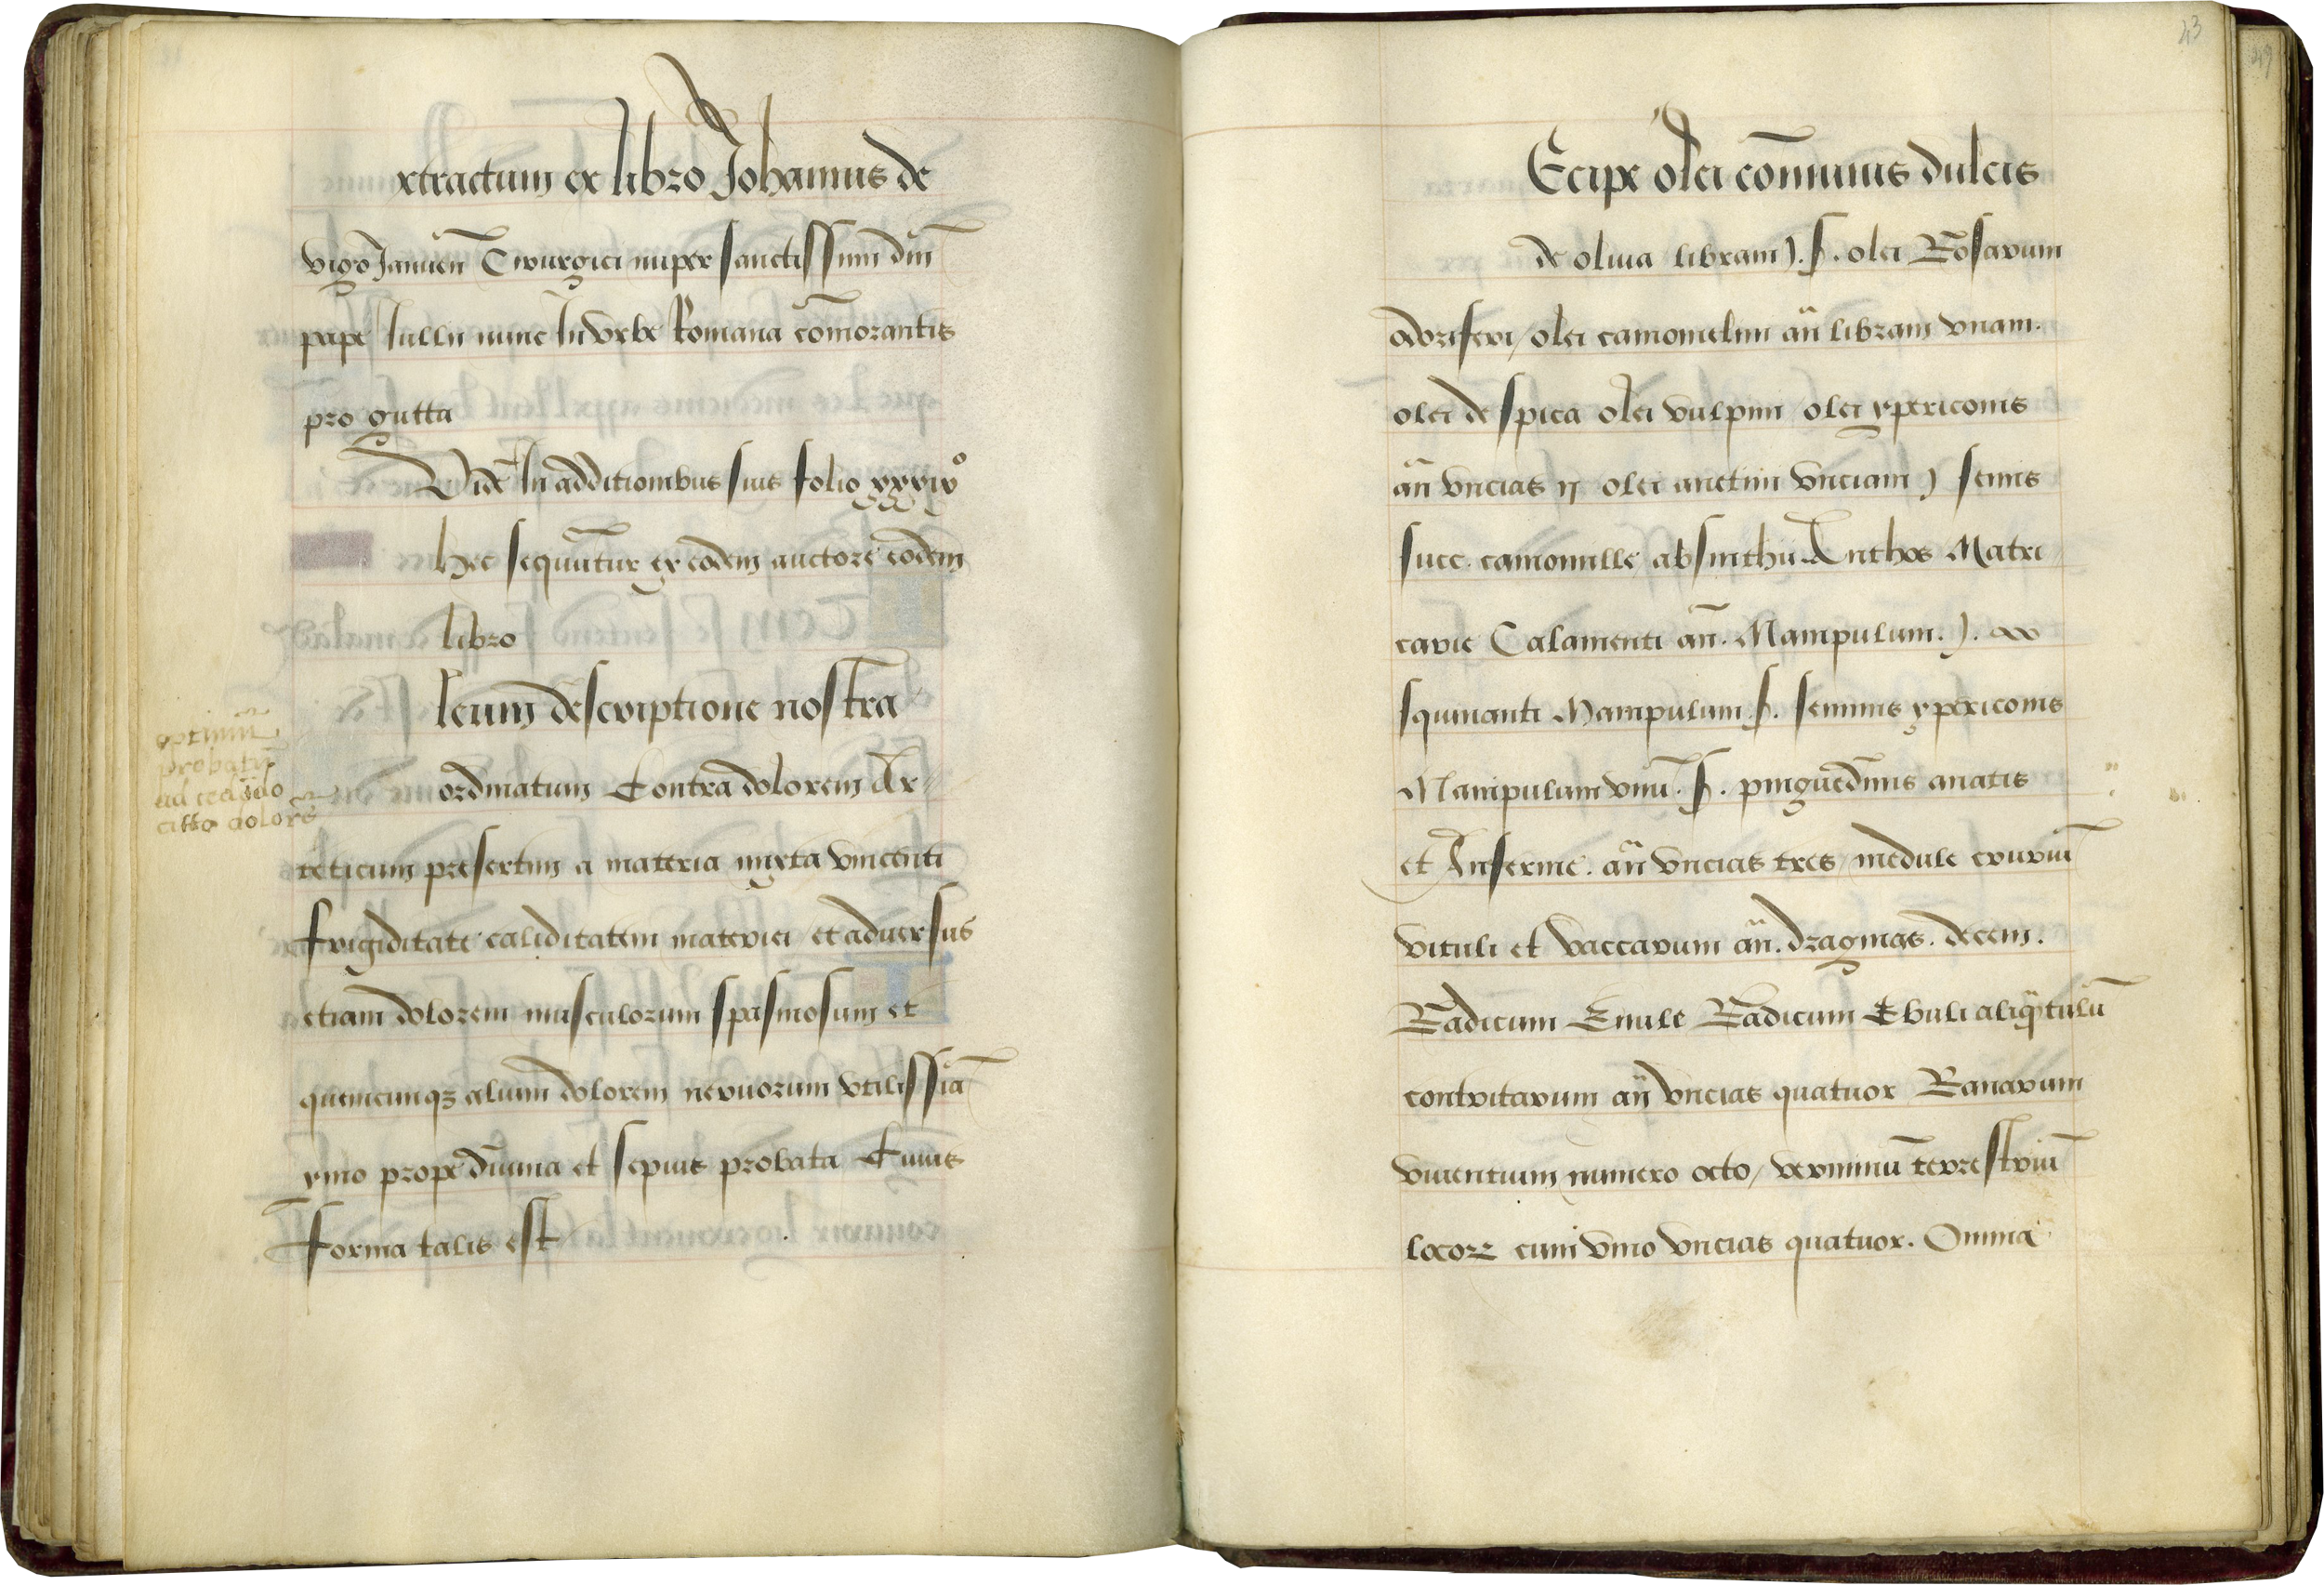 xtractum ex libro Johannis de
vigo Januen̄ Cirurgici nuper sanctissimi dn̄i
pape Iullii nunc In vrbe Romana cōmorantis
pro gutta
Vide In additionibus suis folio xxxix°
hec sequūtur ex eodem auctore eodem
libro
leum descriptione nostra
ordinatum Contra dolorem Ar-
teticum presertim a materia mixta vincenti
frigiditate caliditatem materiei et aduersus
etiam dolorem musculorum spasmosum et
quemcunqz alium dolorem neruorum vtilissīa
ymo prope diuina et sepius probata Cuius
Forma talis est
optimū
probatū
ad cedādo
citto dolorē
43
Ecipe olei cōmunis dulcis
de oliua libram j. ß. olei Rosarum
odoriferi / olei camomelini an̄ libram vnam.
olei de spica olei vulpini / olei ypericonis
an̄ vncias ij olei anetini vnciam j semis
succ. camomille absinthii Anthos Matri
carie Calamenti an̄. Manipulum. j. 
squinanti Manipulum ß. seminis ypericonis
Manipulum vnū. ß. pinguedinis anatis
et Anserine. an̄ vncias tres / medule cruriū
vituli et vaccarum an̄. dragmas. decem.
Radicum Enule Radicum Ebuli aliqātulū
contritarum an̄ vncias quatuor Ranarum
viuentium numero octo / verminū terrestriū
locorz cum vino vncias quatuor. Omnia
49